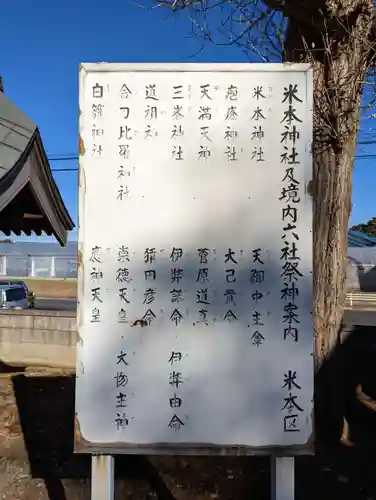 米本神社及境内六社祭神案内 米本区
米本神社 天御中主命
疱瘡神社 大己貴命
天満天神 菅原道真
三峯神社 伊弉諾命 伊弉冉命
道祖神 猿田彦命
金刀比羅神社 崇徳天皇 大物主神
白幡神社 応神天皇